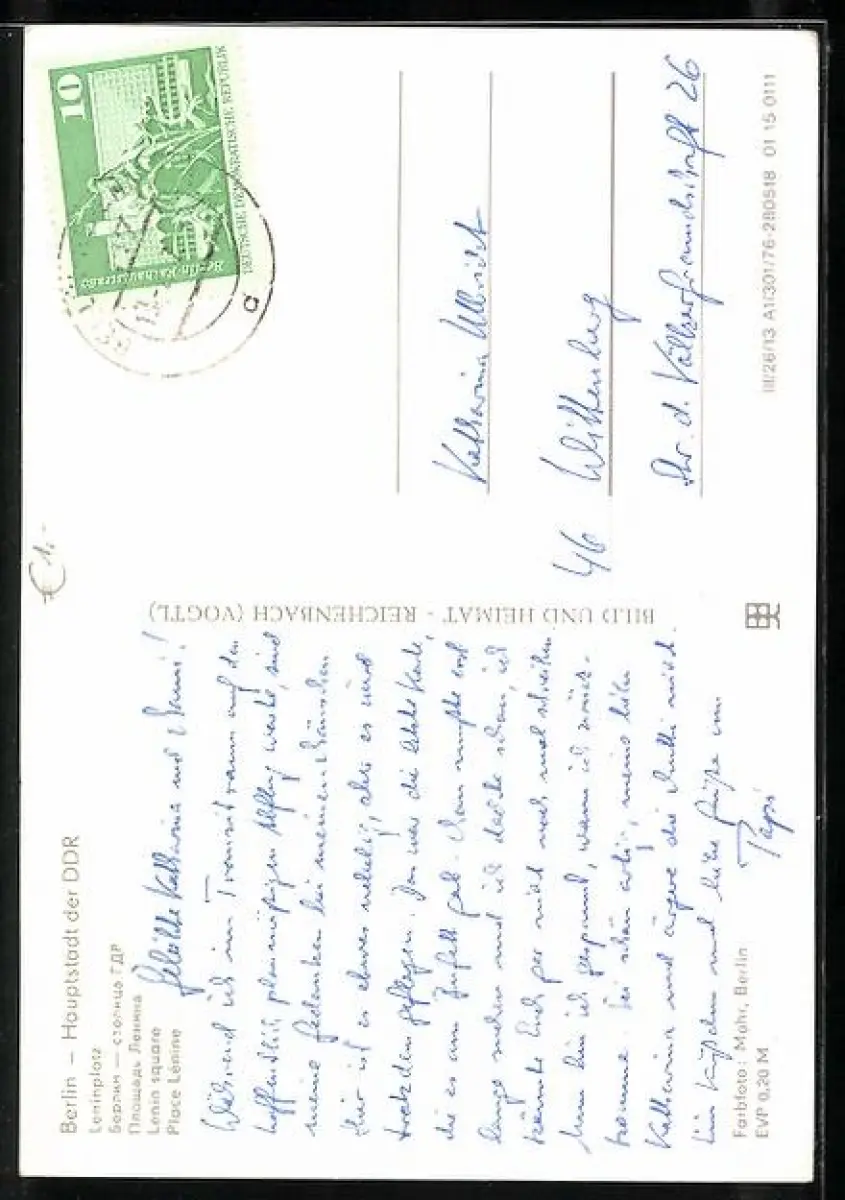 Berlin — Hauptstadt der DDR
Leninplatz
Берлин — столица ГДР
Площадь Ленина
Lenin square
Place Lénine
Geliebte Katharina und
Während ich im Transitraum auf den
hoffentlich planmäßigen Abflug warte, sind
meine Gedanken bei meinen
Hier ist es etwas neblig, aber es wird
trotzdem geflogen. Das war die letzte Karte,
die es am Zufall gab. Man mußte erst
lange suchen und ich dachte schon, ich
könnte Euch gar nicht noch mal schreiben
Nun bin ich gespannt, wann ich zurück-
komme. Sei schön artig, meine liebe
Katharina und ärgere die Mutti nicht.
Ein Küßchen und liebe Grüße von
Papi
Farbfoto: Mohr, Berlin
EVP 0,20 M
BILD UND HEIMAT - REICHENBACH (VOGTL)
€ 1,-
10
DEUTSCHE DEMOKRATISCHE REPUBLIK
Berlin·Rathausstraße
a
Katharina Ulbricht
46 Wittenberg
Str. d. Völkerfreundschaft 26
III/26/13 A1/301/76-280518 01 15 0111